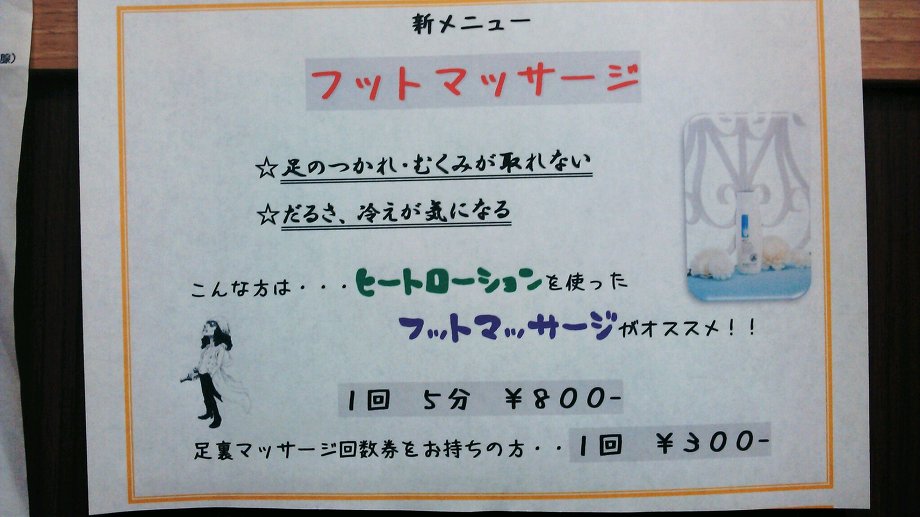 腺）
新メニュー
フットマッサージ
☆足のつかれ・むくみが取れない
☆だるさ、冷えが気になる
こんな方は・・・ヒートローションを使った
フットマッサージがオススメ！！
1回 5分 ￥800-
足裏マッサージ回数券をお持ちの方・・1回 ￥300-